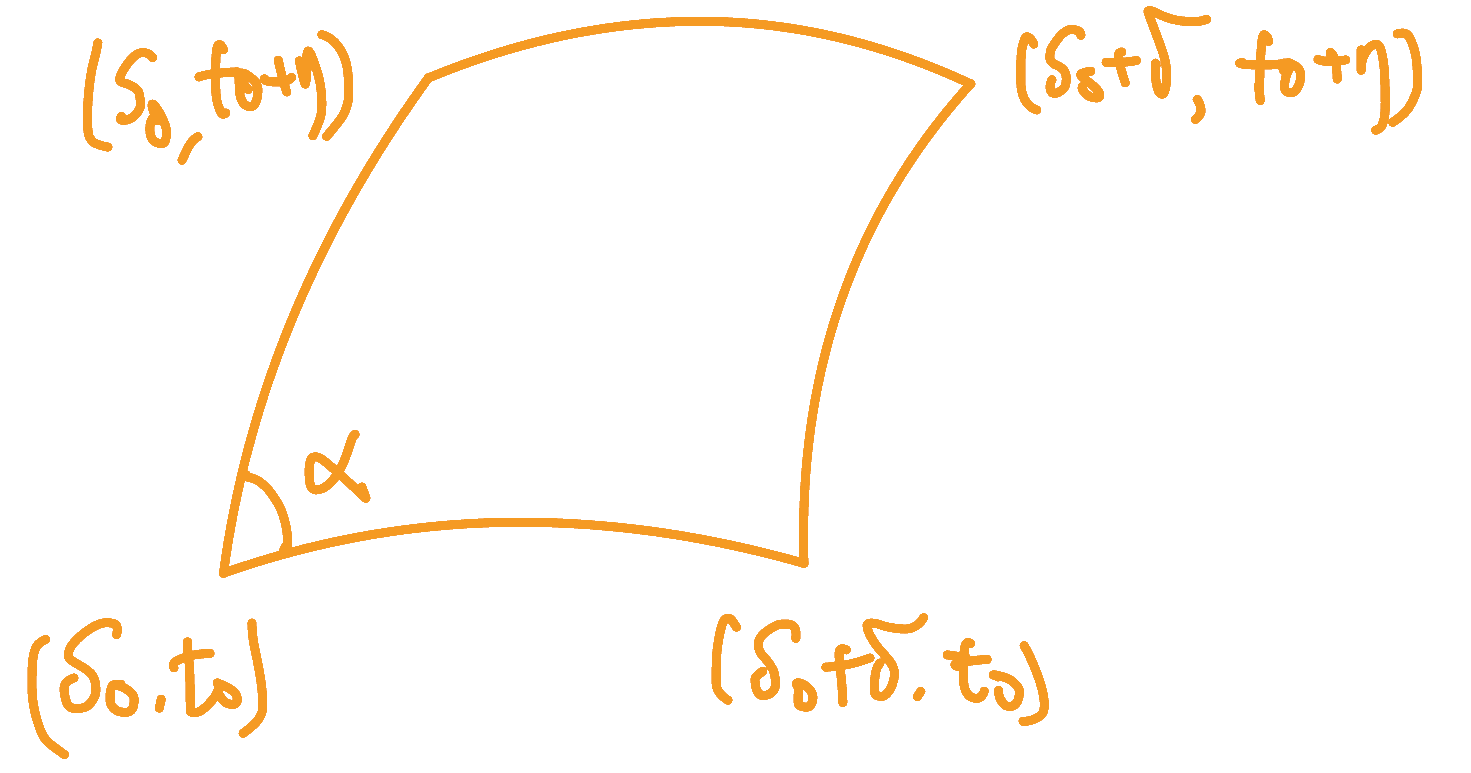 (s₀, t₀+η)
(s₀+δ, t₀+η)
α
(s₀, t₀)
(s₀+δ, t₀)